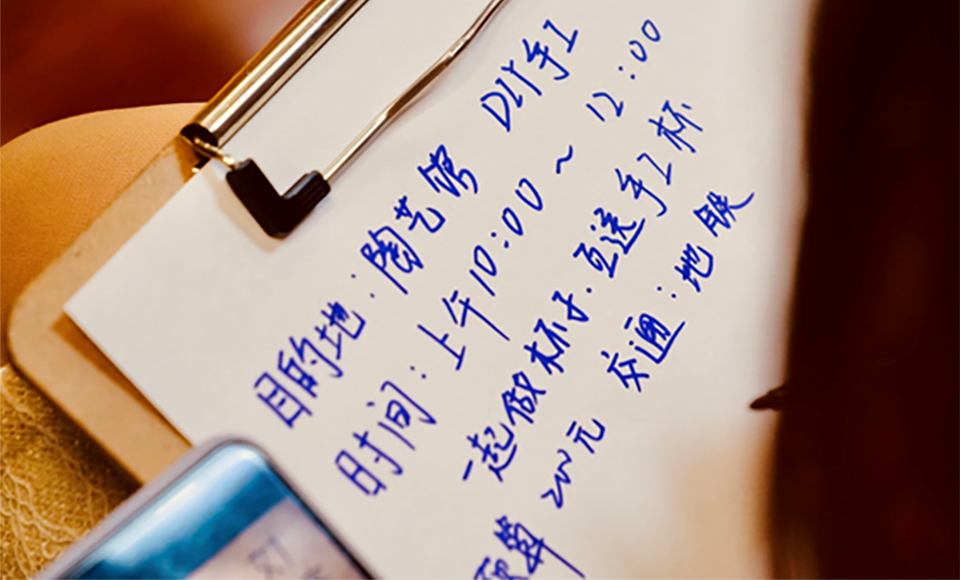 目的地：陶艺馆 DIY手工
时间：上午10:00～12:00
一起做杯子.互送手工杯
预算 200元 交通：地铁